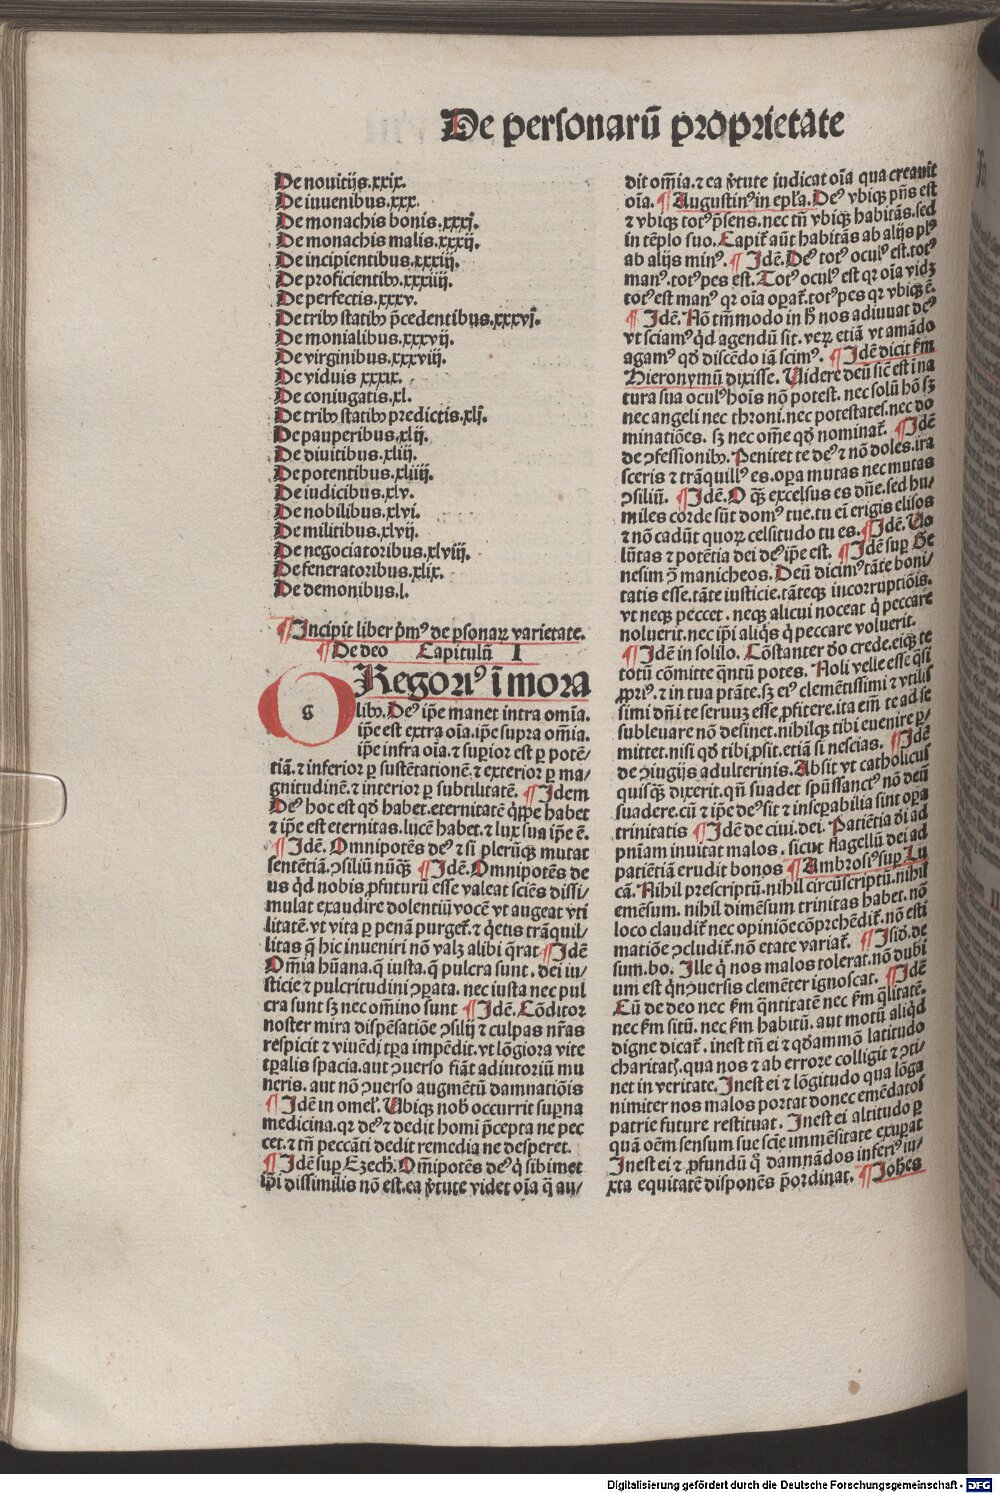 De personarū ꝓprietate
De nouitijs.xxix.
De iuuenibus.xxx.
De monachis bonis.xxxj.
De monachis malis.xxxij.
De incipientibus.xxxiij.
De proficientibꝰ.xxxiiij.
De perfectis.xxxv.
De tribꝰ statibꝰ p̄cedentibus.xxxvj.
De monialibus.xxxvij.
De virginibus.xxxviij.
De viduis xxxix.
De coniugatis.xl.
De tribꝰ statibꝰ predictis.xlj.
De pauperibus.xlij.
De diuitibus.xliij.
De potentibus.xliiij.
De iudicibus.xlv.
De nobilibus.xlvi.
De militibus.xlvij.
De negociatoribus.xlviij.
De feneratoribus.xlix.
De demonibus.l.
¶ Incipit liber p̄mꝰ de ꝑsonaꝝ varietate.
¶ De deo Capitulū I
GRegoriꝰ ī mora
libꝰ. Deꝰ ip̄e manet intra om̄ia.
ip̄e est extra oīa.ip̄e supra om̄ia.
ip̄e infra oīa.⁊ suꝑior est ꝑ potē/
tiā.⁊ inferior ꝑ sustētationē.⁊ exterior ꝑ ma/
gnitudinē.⁊ interior ꝑ subtilitatē. ¶ Idem
Deꝰ hoc est qd̄ habet.eternitatē q̇ppe habet
⁊ ip̄e est eternitas.lucē habet.⁊ lux sua ip̄e ē.
¶ Idē. Omnipotēs deꝰ ⁊ si plerūqꝫ mutat
sentētiā.ꝯsiliū nūq̄ꝫ ¶ Idē. Omnipotēs de
us qd̄ nobis ꝓfuturū esse valeat sciēs dissi/
mulat exaudire dolentiū vocē vt augeat vti
litatē.vt vita ꝑ penā purgeť.⁊ q̇etis trāquil/
litas q̄ hic inueniri nō valꝫ alibi q̄rat ¶ Idē
Om̄ia hūana.q̄ iusta.q̄ pulcra sunt. dei iu/
sticie ⁊ pulcritudini ꝯꝑata. nec iusta nec pul
cra sunt sꝫ nec om̄ino sunt ¶ Idē. Cōditor
noster mira dispēsatiōe ꝯsilij ⁊ culpas nr̄as
respicit ⁊ viuēdi tꝑa impēdit.vt lōgiora vite
tꝑalis spacia.aut ꝯuerso fiāt adiutoriū mu
neris. aut nō ꝯuerso augmētū damnatiōis
¶ Idē in omeľ. Ubiqꝫ nob̄ occurrit suꝑna
medicina.qr deꝰ ⁊ dedit homi p̄cepta ne pec
cet.⁊ tn̄ peccāti dedit remedia ne desperet.
¶ Idē suꝑ Ezech. Om̄ipotēs deꝰ q̇ sibimet
ip̄i dissimilis nō est.ea v̄tute videt oīa q̄ au/
dit om̄ia.⁊ ea v̄tute iudicat oīa qua creauit
oīa. ¶ Augustinꝰ in ep̄ľa. Deꝰ vbiqꝫ p̄ns est
⁊ vbiqꝫ totꝰ p̄sens.nec tn̄ vbiqꝫ habitās.sed
in tēplo suo. Capiť aūt habitās ab alijs plꝰ
ab alijs minꝰ. ¶ Idē. Deꝰ totꝰ oculꝰ est.totꝰ
manꝰ.totꝰ pes est. Totꝰ oculꝰ est qr oīa vidꝫ
totꝰ est manꝰ qr oīa oꝑať.totꝰ pes qr vbiqꝫ ē.
¶ Idē. Nō tm̄modo in h̄ nos adiuuat deꝰ
vt sciamꝰ qd̄ agendū sit. veꝝ etiā vt amādo
agamꝰ qd̄ discēdo iā scimꝰ. ¶ Idē dicit s̄m
Hieronymū dixisse. Uidere deū sic̄ est ī na
tura sua oculꝰ hoīs nō potest. nec solū hō sꝫ
nec angeli nec throni.nec potestates.nec do
minatiōes. sꝫ nec om̄e qd̄ nominať. ¶ Idē
de ꝯfessionibꝰ. Penitet te deꝰ ⁊ nō doles.ira
sceris ⁊ trāquillꝰ es.oꝑa mutas nec mutas
ꝯsiliū. ¶ Idē. O q̄ꝫ excelsus es dn̄e.sed hu/
miles corde sūt domꝰ tue.tu ei erigis elisos
⁊ nō cadūt quoꝝ celsitudo tu es. ¶ Idē. Uo
lūtas ⁊ potētia dei deꝰ ip̄e est. ¶ Idē suꝑ Ge
nesim ꝯ̄ manicheos. Deū dicimꝰ tāte boni/
tatis esse.tāte iusticie.tāteqꝫ incorruptiōis.
vt neqꝫ peccet. neqꝫ alicui noceat q̇ peccare
noluerit.nec ip̄i aliq̇s q̇ peccare voluerit.
¶ Idē in solilo. Cōstanter do crede.eiqꝫ te
totū cōmitte q̄ntū potes. Noli velle esse q̄si
ꝓpriꝰ.⁊ in tua ptāte.sꝫ eiꝰ clemētissimi ⁊ vtilis
simi dn̄i te seruū esse ꝓfitere.ita em̄ te ad se
subleuare nō desinet.nihilqꝫ tibi euenire ꝑ/
mittet.nisi qd̄ tibi ꝓsit.etiā si nescias. ¶ Idē
de ꝯiugijs adulterinis. Absit vt catholicus
quisqꝫ dixerit.qn̄ suadet spūssanctꝰ nō deū
suadere.cū ⁊ ip̄e deꝰ sit ⁊ inseꝑabilia sint oꝑa
trinitatis ¶ Idē de ciui.dei. Patiētia di ad
pn̄iam inuitat malos. sicut flagellū dei ad
patiētiā erudit bonos ¶ Ambrosiꝰ suꝑ Lu
cā. Nihil prescriptū.nihil circūscriptū.nihil
emēsum. nihil dimēsum trinitas habet. nō
loco claudiť nec opiniōe cōprehēdiť.nō esti
matiōe ꝯcludiť.nō etate variať. ¶ Isid̄.de
sum.bo. Ille q̇ nos malos tolerat.nō dubi
um est q̇n ꝯuersis clemēter ignoscat. ¶ Idē
Cū de deo nec s̄m q̄ntitatē nec s̄m q̄litatē.
nec s̄m sitū. nec s̄m habitū. aut motū aliq̇d
digne dicať. inest tn̄ ei ⁊ qd̄ammō latitudo
charitatꝭ.qua nos ⁊ ab errore colligit ⁊ ꝯti/
net in veritate. Inest ei ⁊ lōgitudo qua lōga
nimiter nos malos portat donec emēdatos
patrie future restituat. Inest ei altitudo ꝑ
quā oēm sensum sue scie immēsitate exuꝑat
Inest ei ⁊ ꝓfundū q̇ damnādos inferiꝰ iu/
xta equitatē disponēs p̄ordinat. ¶ Ioh̄es
Digitalisierung gefördert durch die Deutsche Forschungsgemeinschaft - DFG